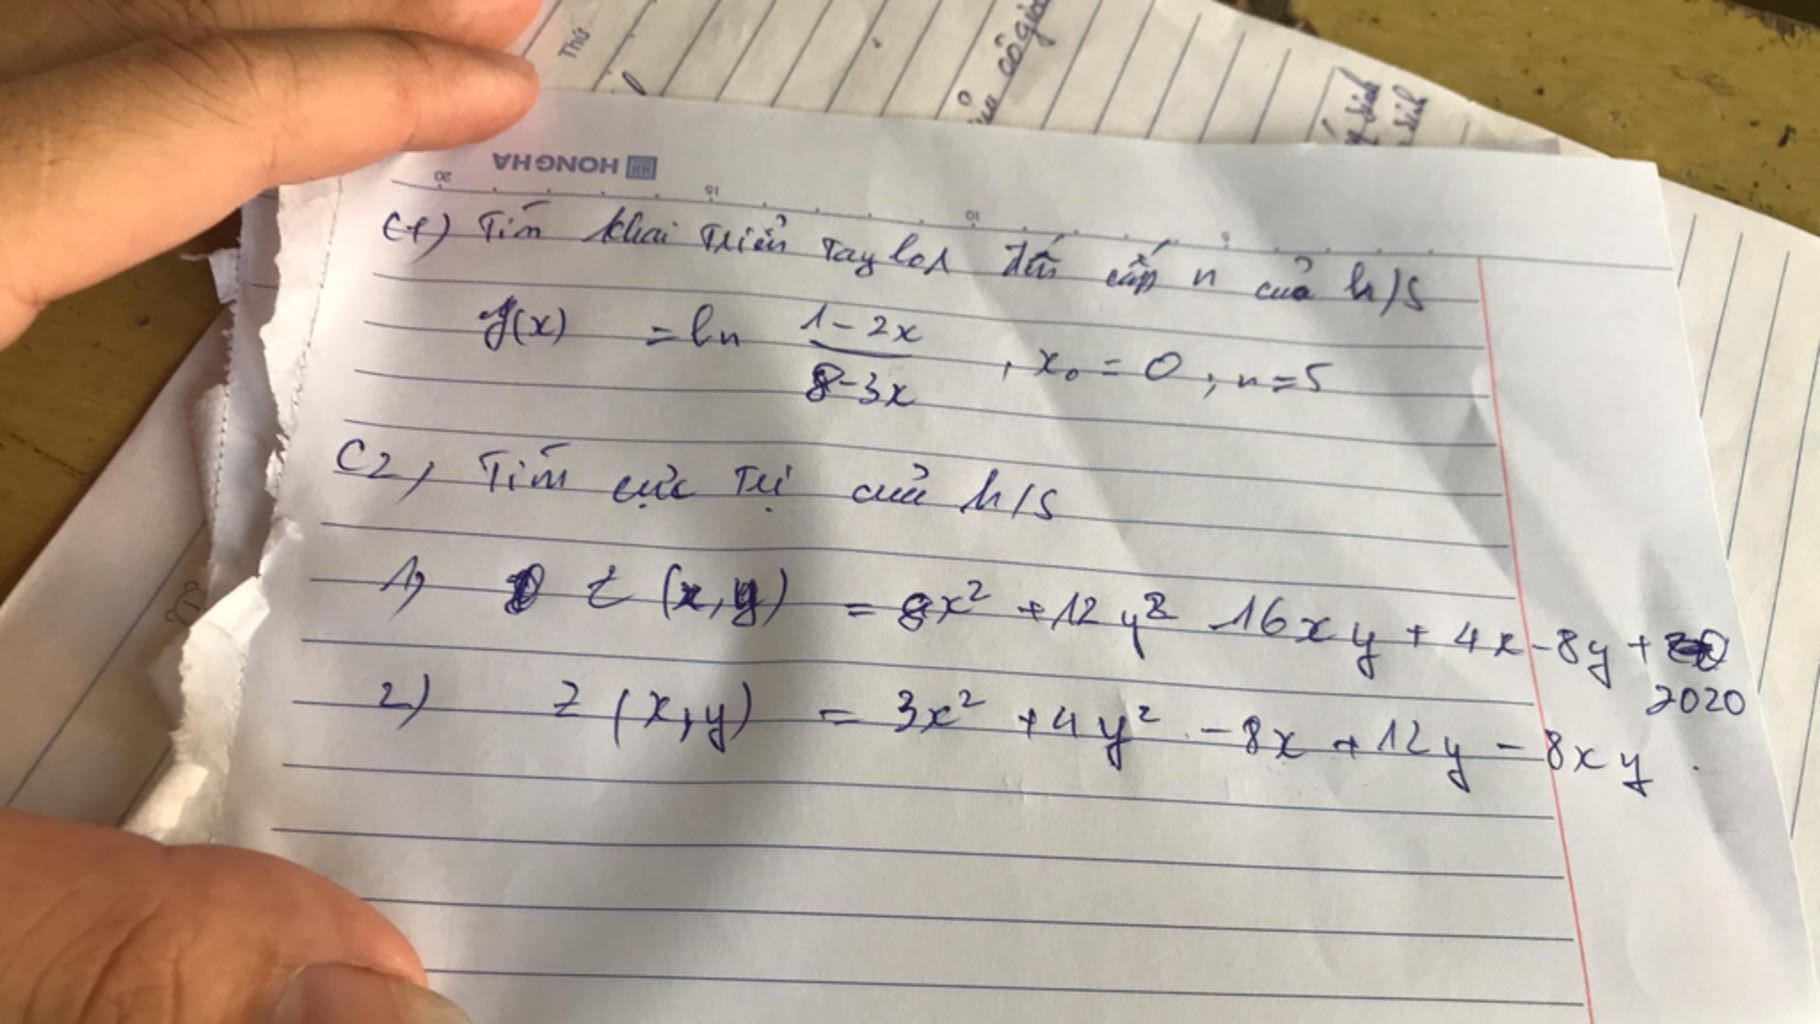 Thứ
của cô giáo
HONG HA
20 15 10 5
C1) Tìm khai triển Taylor đến cấp n của h/s
f(x) = ln \frac{1-2x}{8-3x} , x₀ = 0 ; n=5
C2, Tìm cực trị của h/s
1, z (x,y) = 8x² + 12y² 16xy + 4x - 8y +
2020
2) z (x,y) = 3x² + 4y² - 8x + 12y - 8xy .